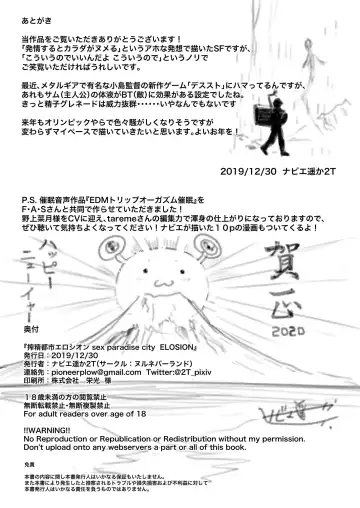 あとがき
当作品をご覧いただきありがとうございます!
「発情するとカラダがヌメる」というアホな発想で描いたSFですが、
「こういうのでいいんだよ こういうので」というノリで
ご笑覧いただければうれしいです。
最近、メタルギアで有名な小島監督の新作ゲーム「デススト」にハマってるんですが、
あれもサム(主人公)の体液がBT(敵)に効果がある設定でしたね。
きっと精子グレネードは威力抜群・・・・・・いやなんでもないです
来年もオリンピックやらで色々騒がしくなりそうですが
変わらずマイペースで描いていきたいと思います。よいお年を!
2019/12/30 ナビエ遥か2T
P.S. 催眠音声作品『EDMトリップオーガズム催眠』を
F・A・Sさんと共同で作らせていただきました!
野上菜月様をCVに迎え、taremeさんの編集力で渾身の仕上がりになっておりますので、
ぜひ聴いて気持ちよくなってください!ナビエが描いた10pの漫画もついてくるよ!
ハッピー
ニューイヤー
賀正
2020
奥付
『搾精都市エロシオン sex paradise city ELOSION』
発行日:2019/12/30
発行者:ナビエ遥か2T(サークル:ヌルネバーランド)
連絡先:pioneerplow@gmail.com Twitter:@2T_pixiv
印刷所:株式会社 栄光 様
18歳未満の方の閲覧禁止
無断転載禁止・無断複製禁止
For adult readers over age of 18
!!WARNING!!
No Reproduction or Republication or Redistribution without my permission.
Don't upload onto any webservers a part or all of this book.
免責
本書の内容に関し本書発行人はいかなる保証もいたしません。
また本書により発生したと推察されるトラブルや損失損害および不利益に対して
本書発行人はいかなる責任を負うものではありません。
ナビエ遥か